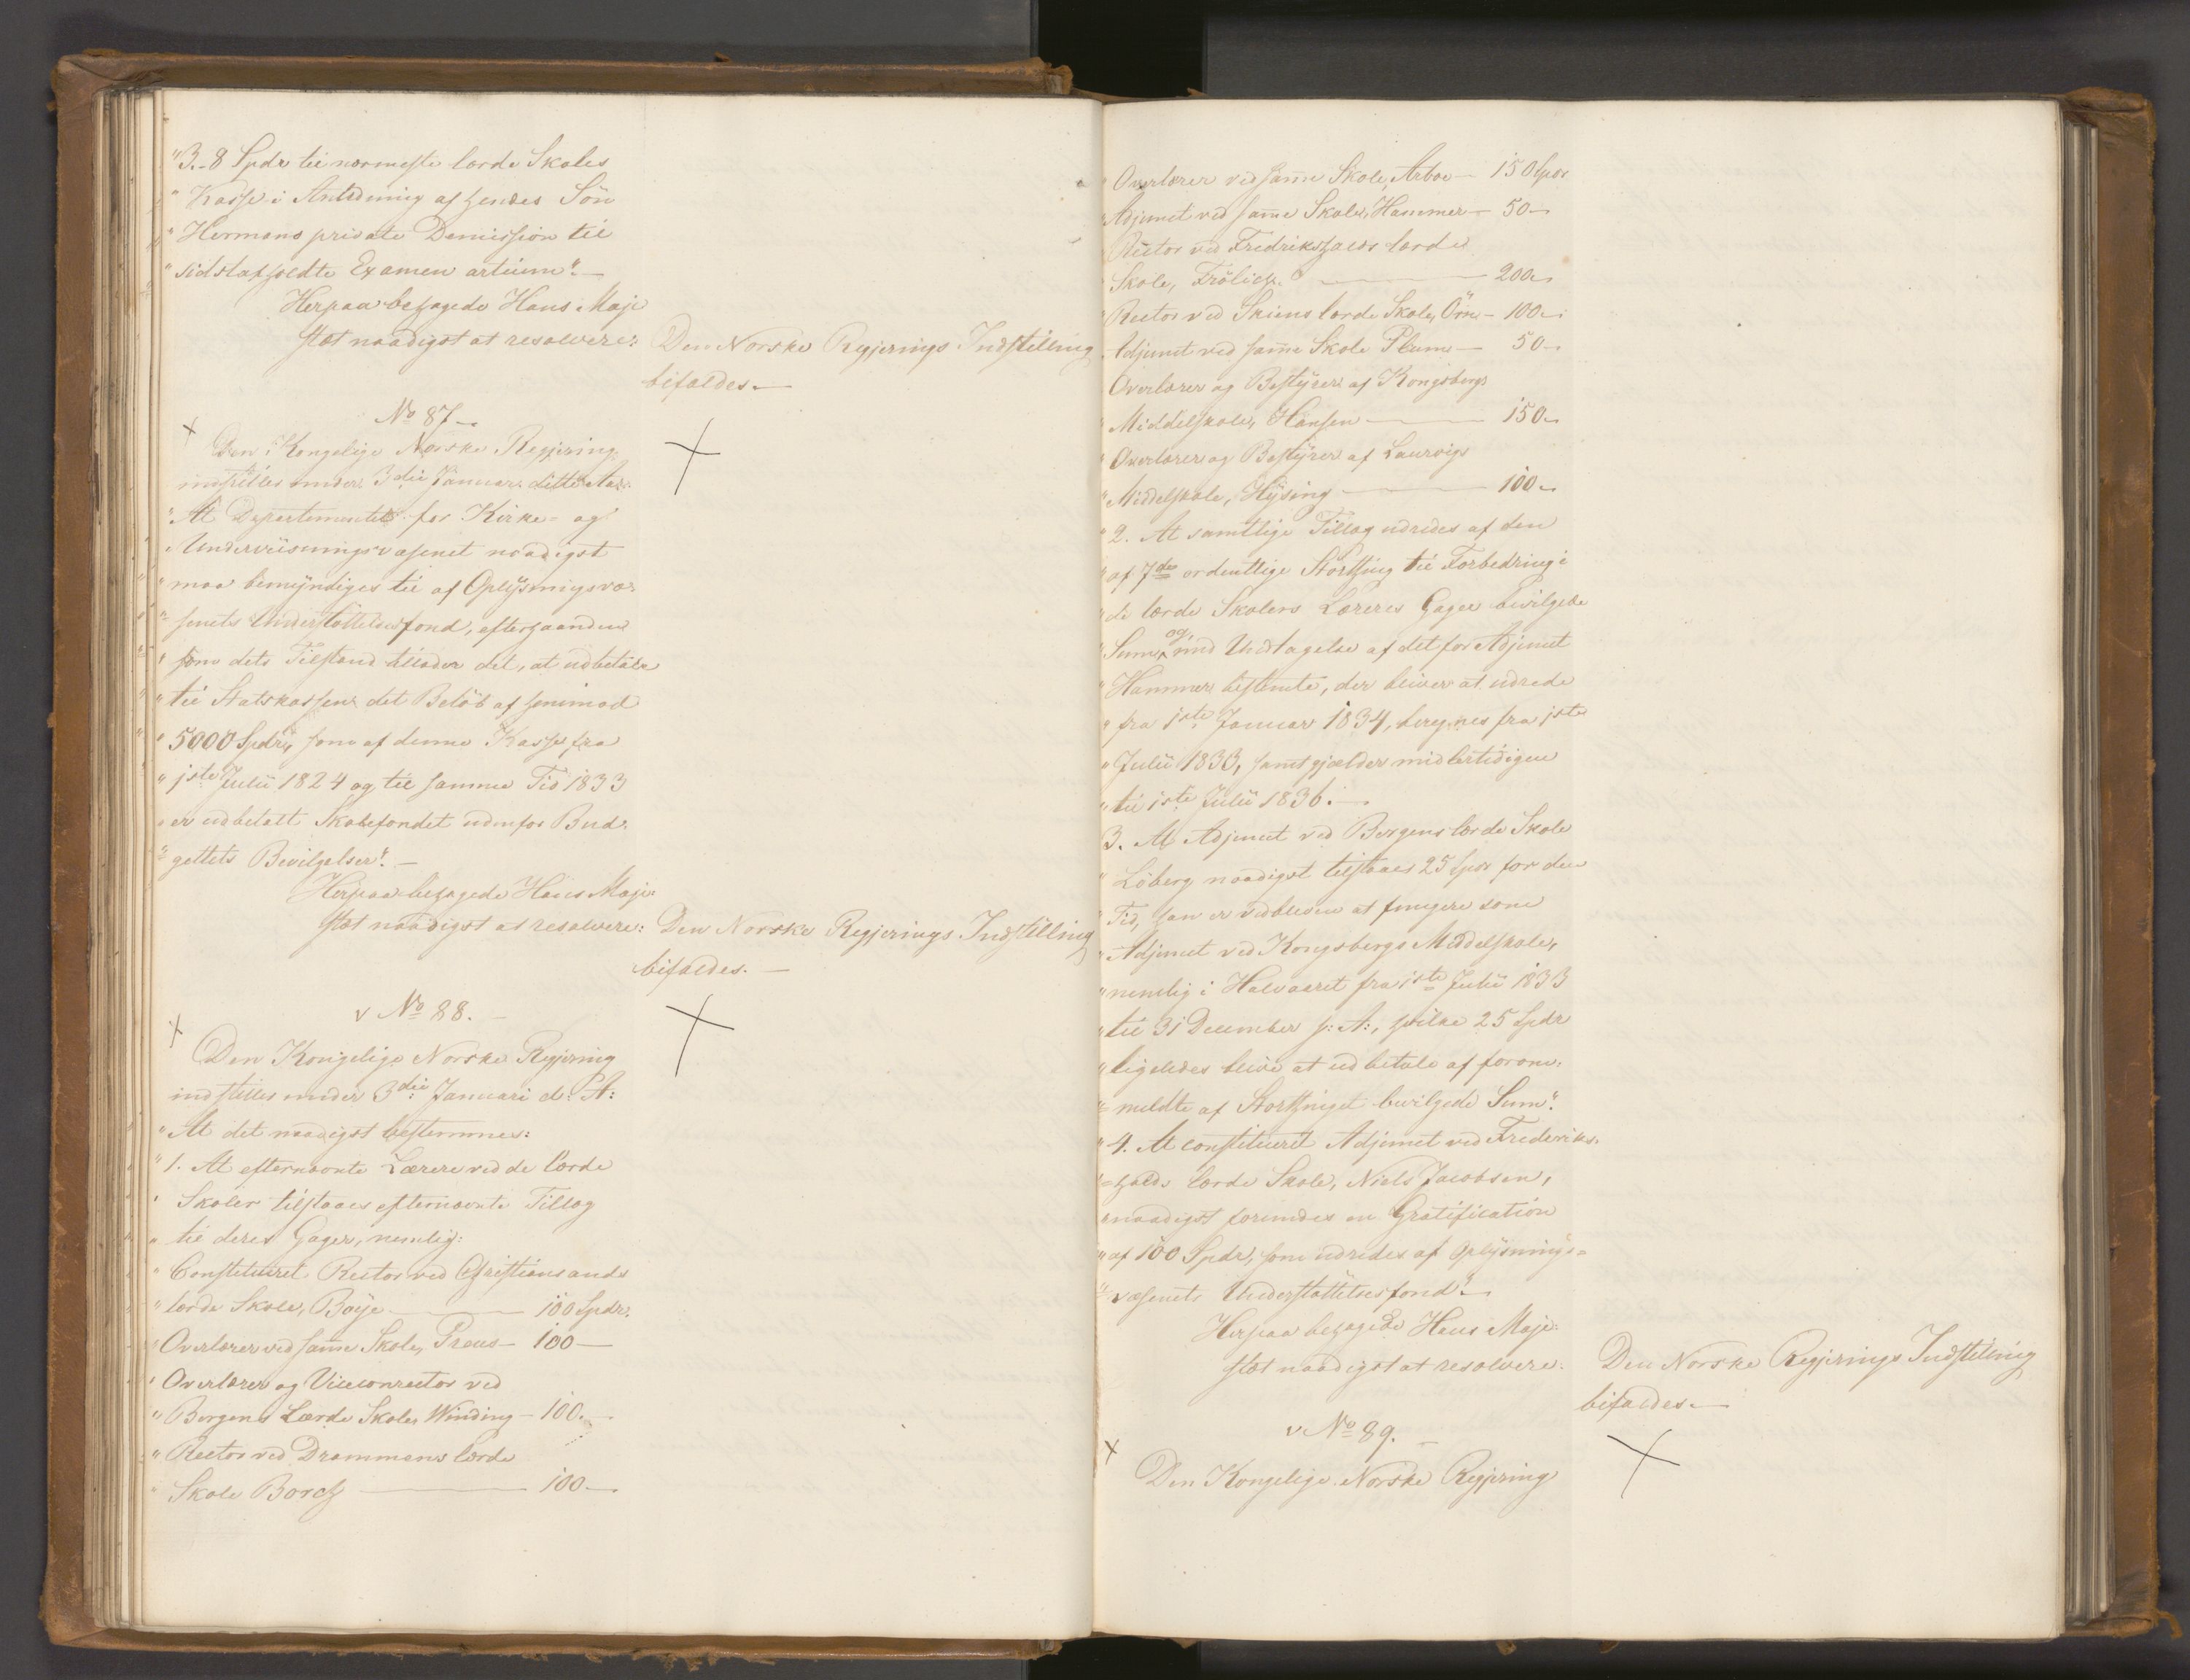 "3.-8 Spdr til nærmeste lærde Skoles
" Kasse i Anledning af hendes Sön
" Hermans private Demission til
" sidstafholdte Examen artium". —
Herpaa behagede Hans Maje
stæt naadigst at resolvere: Den Norske Regjerings Indstilling
bifaldes. —
No 87 —
Den Kongelige Norske Regjering
indstiller under 3die Januar dette Aar:
"At Departementet for Kirke- og
Underviisningsvæsenet naadigst
" maa bemyndiges til af Oplysningsvæ-
"senets Understöttelsesfond, efterhaanden
" som dets Tilstand tillader det, at udbetale
" til Statskassen det Belöb af henimod
" 5000 Spdr, som af denne Kasse fra
" 1ste Julii 1824 og til samme Tid 1833
" er udbetalt Skolefondet udenfor Bud-
" gettets Bevilgelser". —
Herpaa behagede Hans Maje-
stæt naadigst at resolvere: Den Norske Regjerings Indstilling
bifaldes. —
v No 88. —
Den Kongelige Norske Regjering
indstiller under 3die Januari d. A:
" At det naadigst bestemmes:
" 1. At efternævnte Lærere ved de lærde
" Skoler tilstaaes efternævnte Tillæg
" til deres Gager, nemlig:
" Constitueret Rector ved Christiansands
" lærde Skole, Boye — 100 Spdr.
" Overlærer ved samme Skole, Preus — 100 —
" Overlærer og Viceconrector ved
" Bergens Lærde Skole, Winding — 100. —
" Rector ved Drammens lærde
" Skole Borch — 100 —
" Overlærer ved samme Skole, Arboe — 150 Spdr
" Adjunct ved samme Skole, Hammer — 50 —
" Rector ved Fredrikshalds lærde
" Skole, Frölich — 200 —
" Rector ved Skiens lærde Skole, Örn — 100 —
" Adjunct ved samme Skole Plum — 50 —
" Overlærer og Bestyrer af Kongsbergs
" Middelskole, Hansen — 150 —
" Overlærer og Bestyrer af Laurvigs
" Middelskole, Hysing — 100 —
" 2. At samtlige Tillæg udredes af den
" af 7de ordentlige Storthing til Forbedring i
" de lærde Skolers Læreres Gager bevilgede
" Sum, og, med Undtagelse af det for Adjunct
" Hammer bestemte, der bliver at udrede
" fra 1ste Januar 1834, beregnes fra 1ste
" Julii 1833, samt gjælder midlertidigen
" til 1ste Julii 1836. —
3. At Adjunct ved Bergens lærde Skole
" Löberg naadigst tilstaaes 25 Spdr for den
" Tid, han er vedbleven at fungere som
" Adjunct ved Kongsbergs Middelskole,
" nemlig i Halvaaret fra 1ste Julii 1833
" til 31 December s: A:, hvilke 25 Spdr
" ligeledes blive at udbetale af foran-
"= meldte af Storthinget bevilgede Sum".
" 4. At constitueret Adjunct ved Frederiks-
"= halds lærde Skole, Niels Jacobsen,
" naadigst forundes en Gratification
" af 100 Spdr, som udredes af Oplysnings=
"= væsenets Understöttelsesfond". —
Herpaa behagede Hans Maje-
stæt naadigst at resolvere: Den Norske Regjerings Indstilling
bifaldes. —
v No 89. —
Den Kongelige Norske Regjering